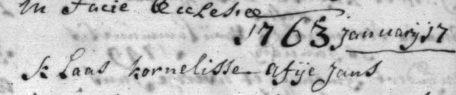 In Facie Ecclesiæ
1763 januarij 17
klaas kornelisse Afije Jans